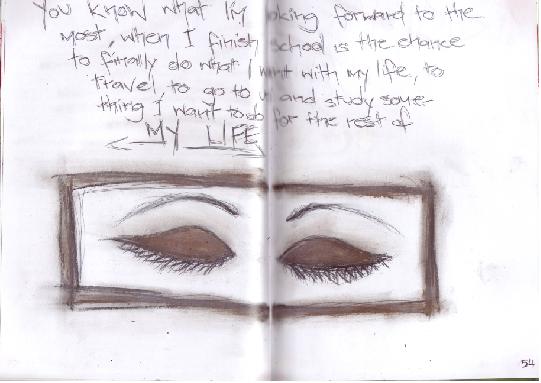 You know what I'm looking forward to the
most, when I finish school is the chance
to finally do what I want with my life, to
travel, to go to u and study some-
thing I want to do for the rest of
MY LIFE
54